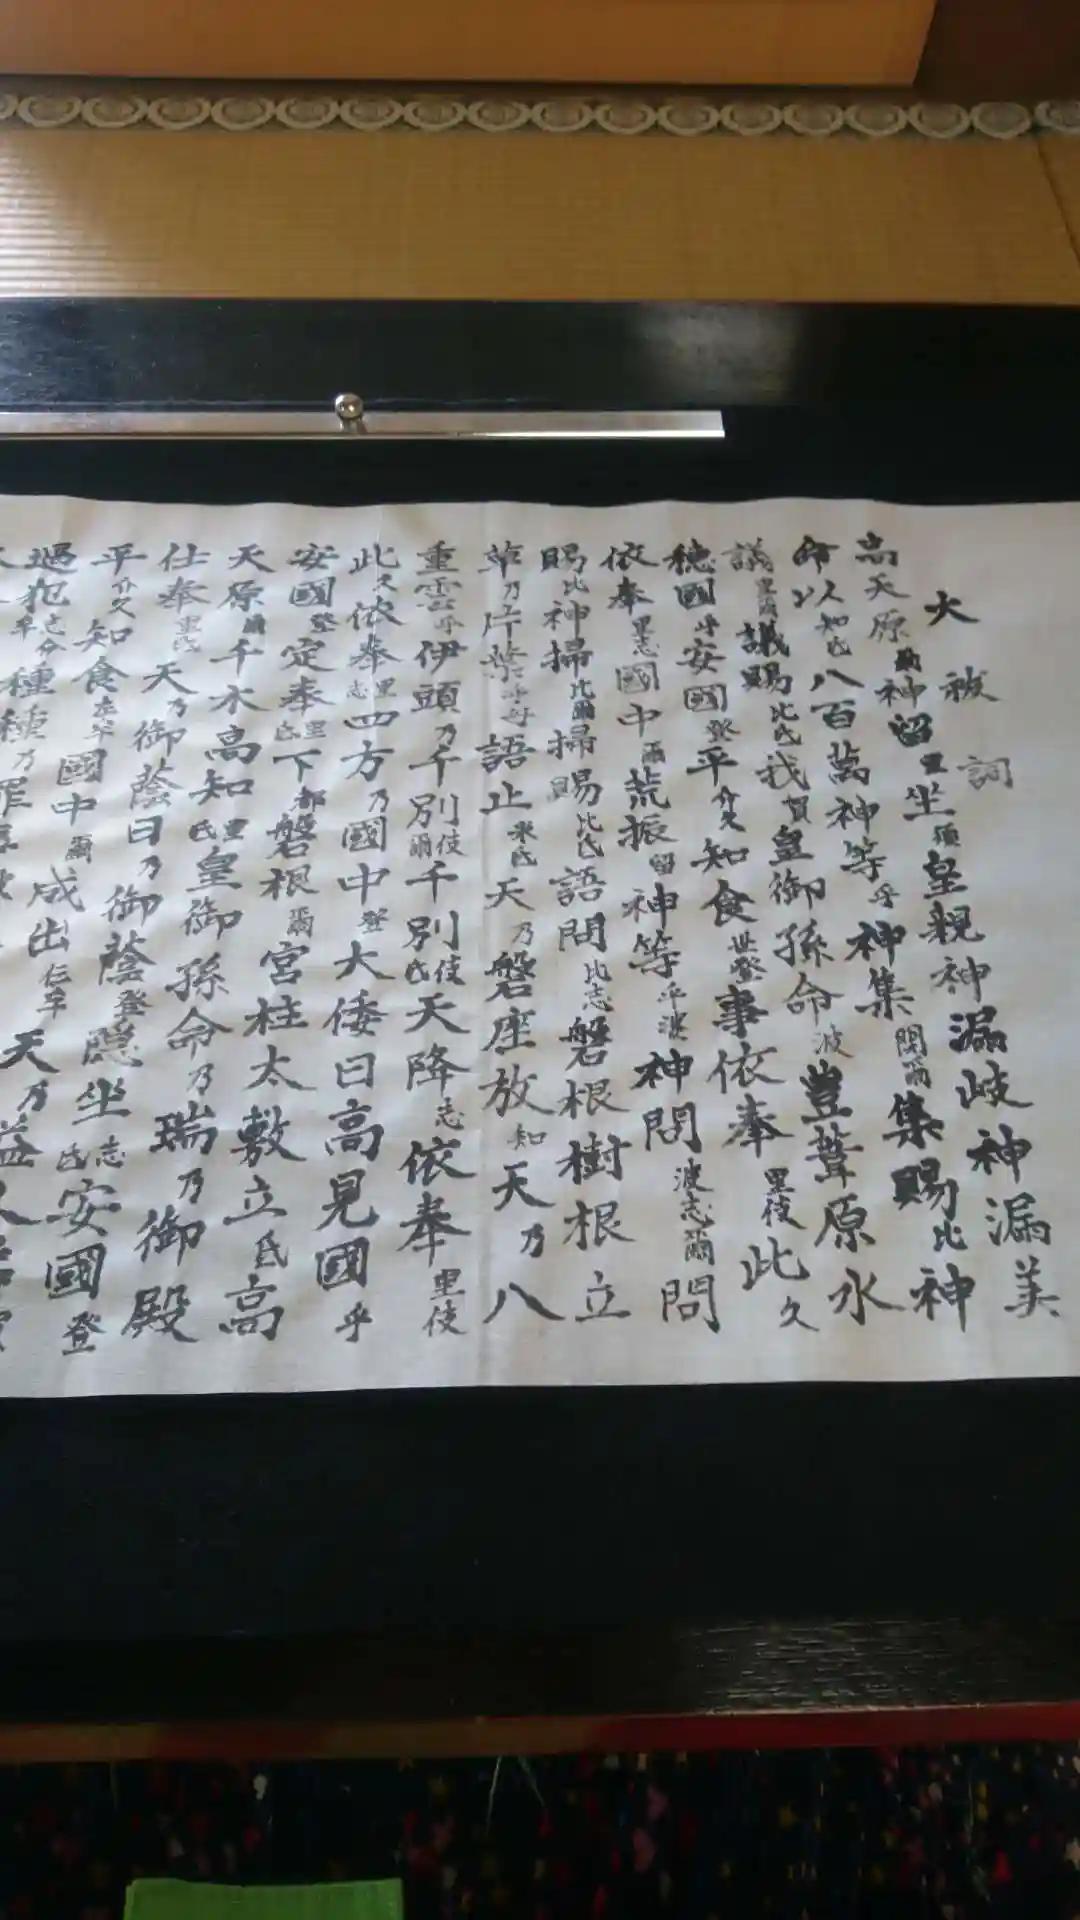 大祓詞
高天原爾神留里坐須皇親神漏岐神漏美
命以知氐八百萬神等乎神集閇爾集賜比神
議里爾議賜比氐我賀皇御孫命波豊葦原水
穂國乎安國登平介久知食世登事依奉里伎此久
依奉里志國中爾荒振留神等乎波神問波志爾問
賜比神掃比爾掃賜比氐語問比志磐根樹根立
草乃片葉乎母語止米氐天乃磐座放知天乃八
重雲乎伊頭乃千別伎爾千別伎氐天降志依奉里伎
此久依奉里志四方乃國中登大倭日高見國乎
安國登定奉里氐下都磐根爾宮柱太敷立氐高
天原爾千木高知里氐皇御孫命乃瑞乃御殿
仕奉里氐天乃御蔭日乃御蔭登隠坐志氐安國登
平介久知食左牟國中爾成出傳牟天乃益人
過犯志介牟種種乃罪